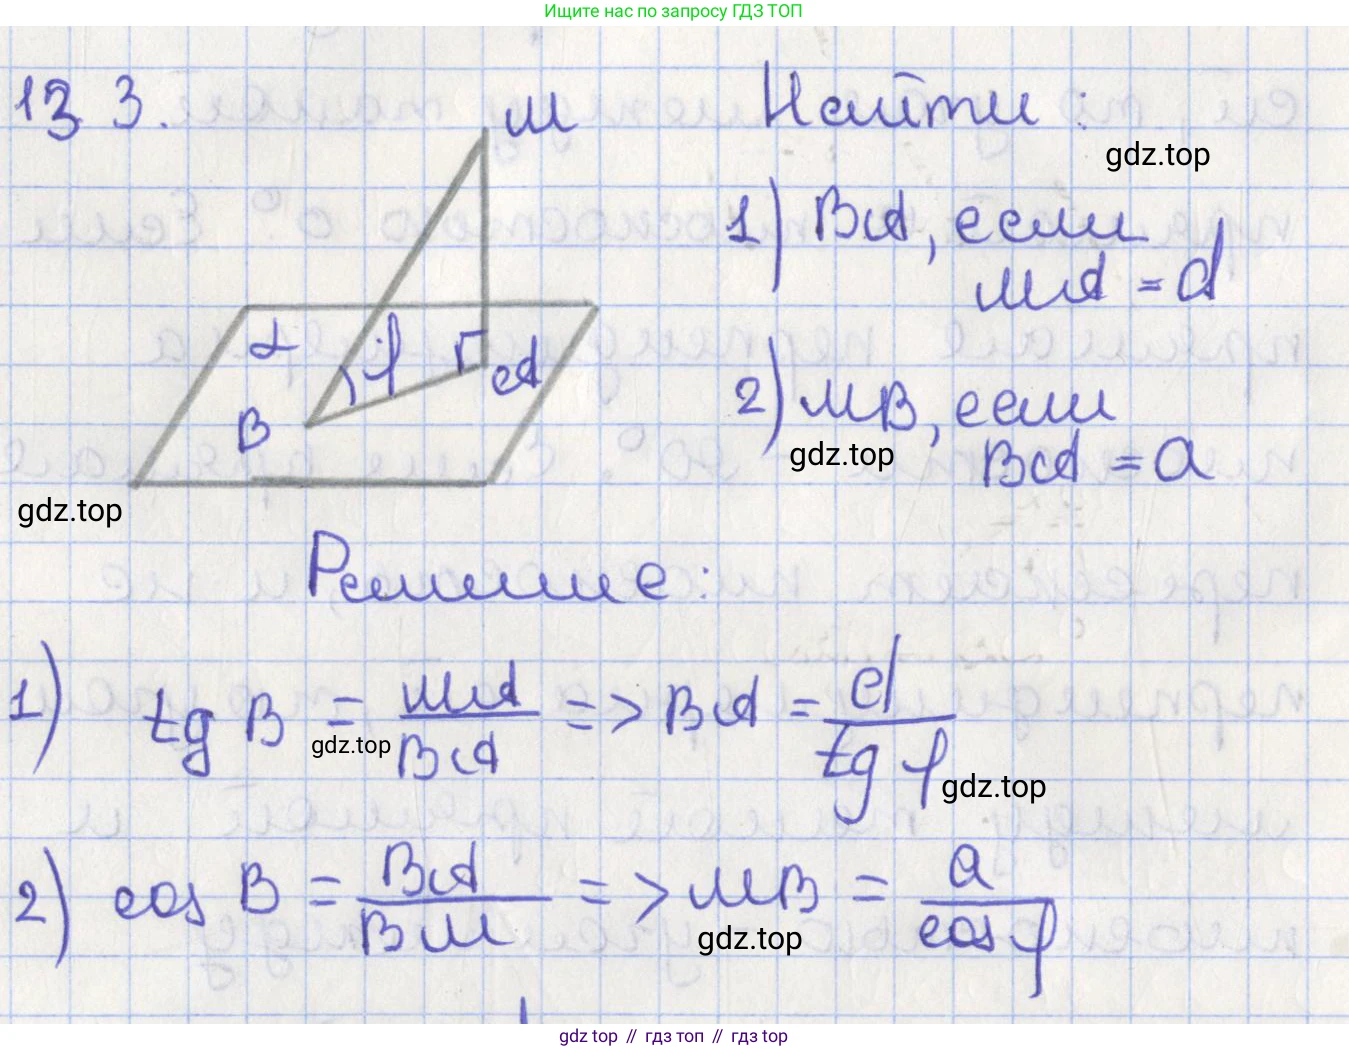 Ищите нас по запросу ГДЗ ТОП
13 3.
M
Найти:
gdz.top
1) BA, если
MA = d
α
φ
A
B
2) MB, если
gdz.top
BA = a
gdz.top
Решение:
1) tg B = MA/BA => BA = d/tg φ
gdz.top
gdz.top
2) cos B = BA/BM => MB = a/cos φ
gdz.top
gdz.top // гдз топ // гдз top